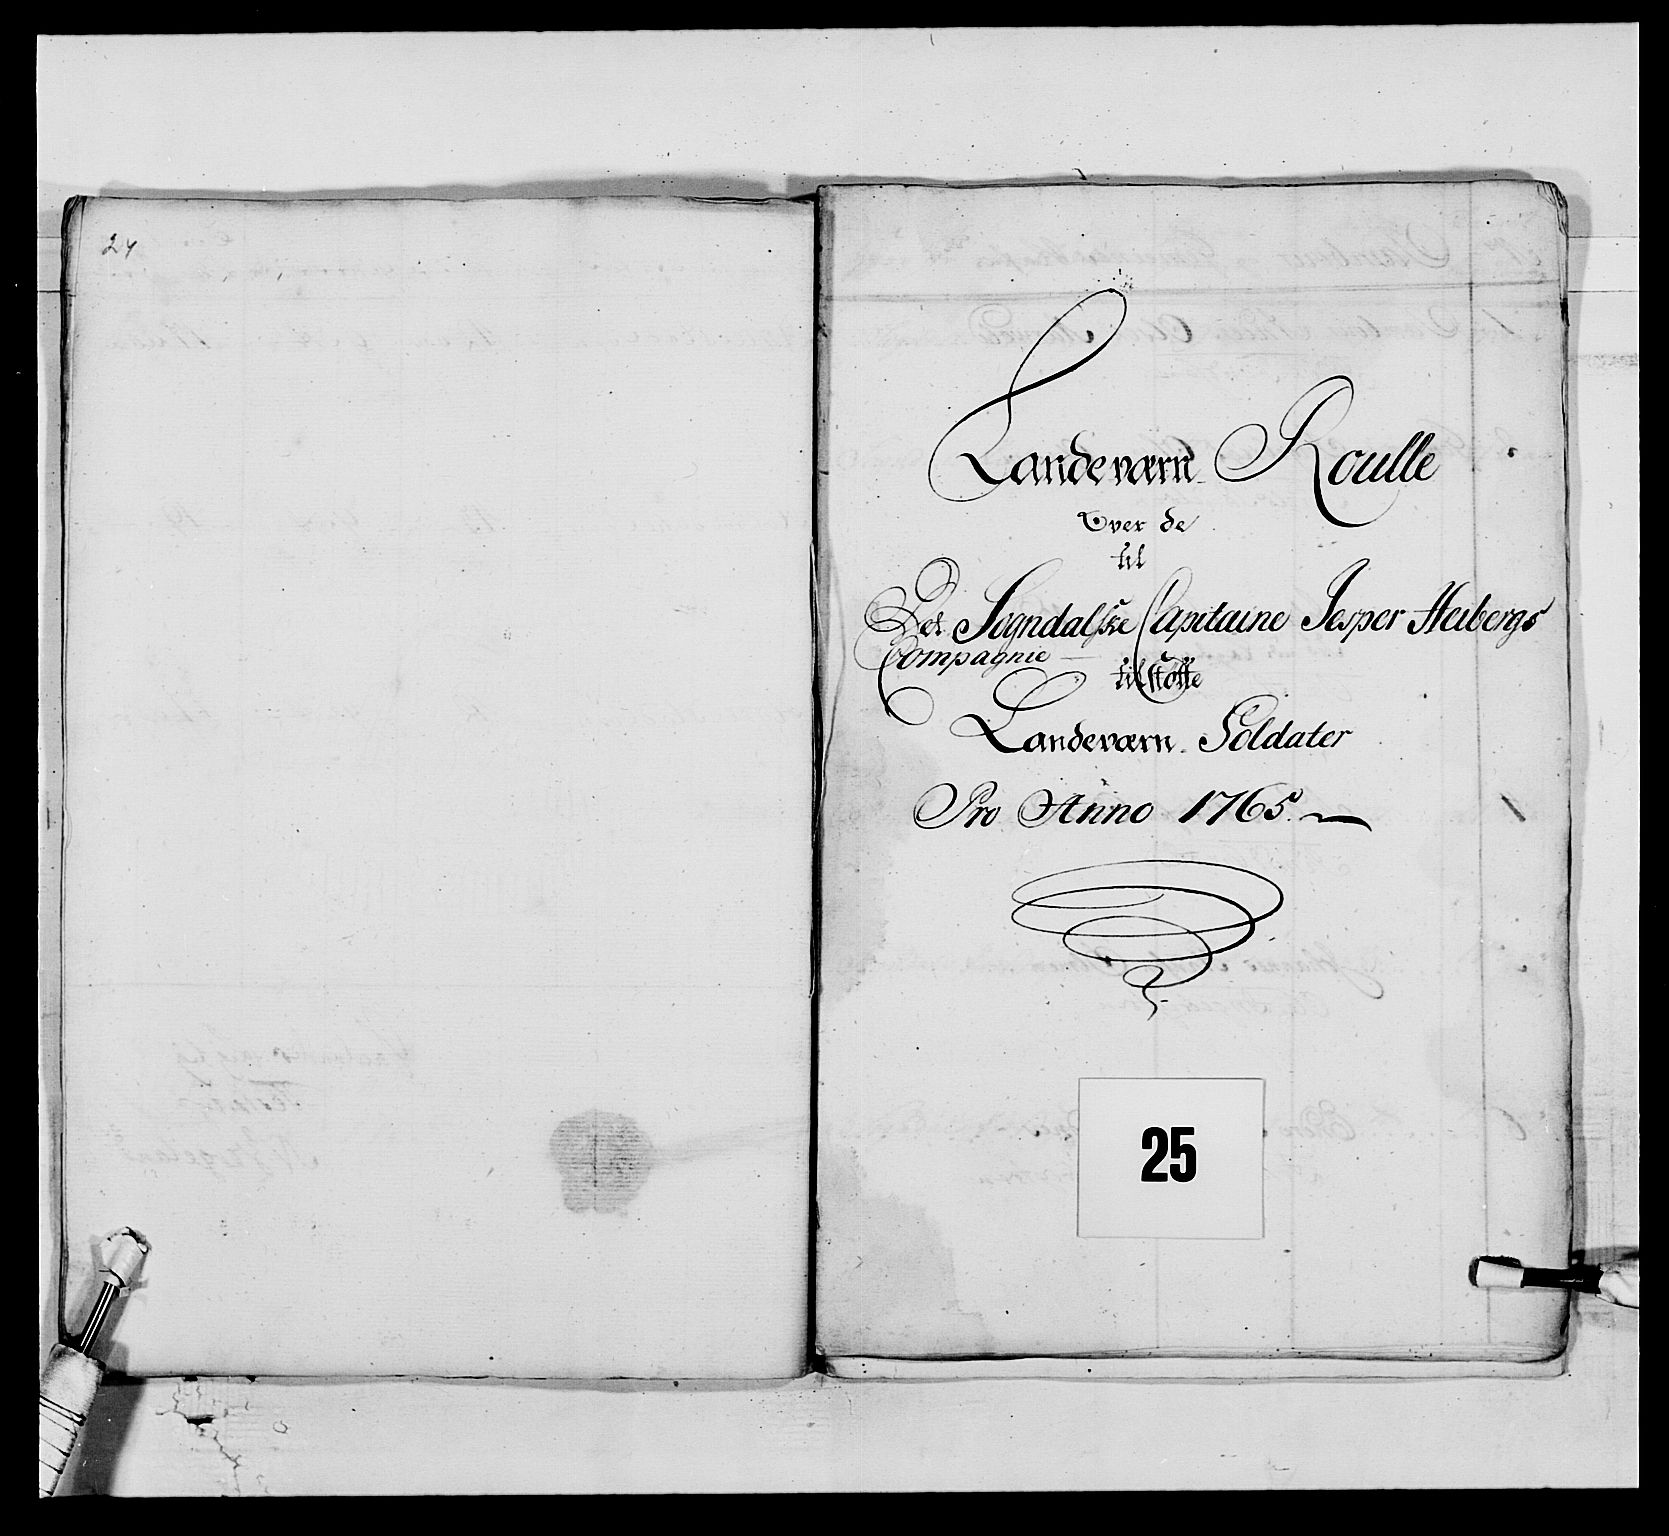 24
Landeværn Roulle
Over de
til
Det Sogndalske Capitaine Jesper Heibergs
Compagnie
tilstötte
Landeværn Soldater
Pro Anno 1765.
25